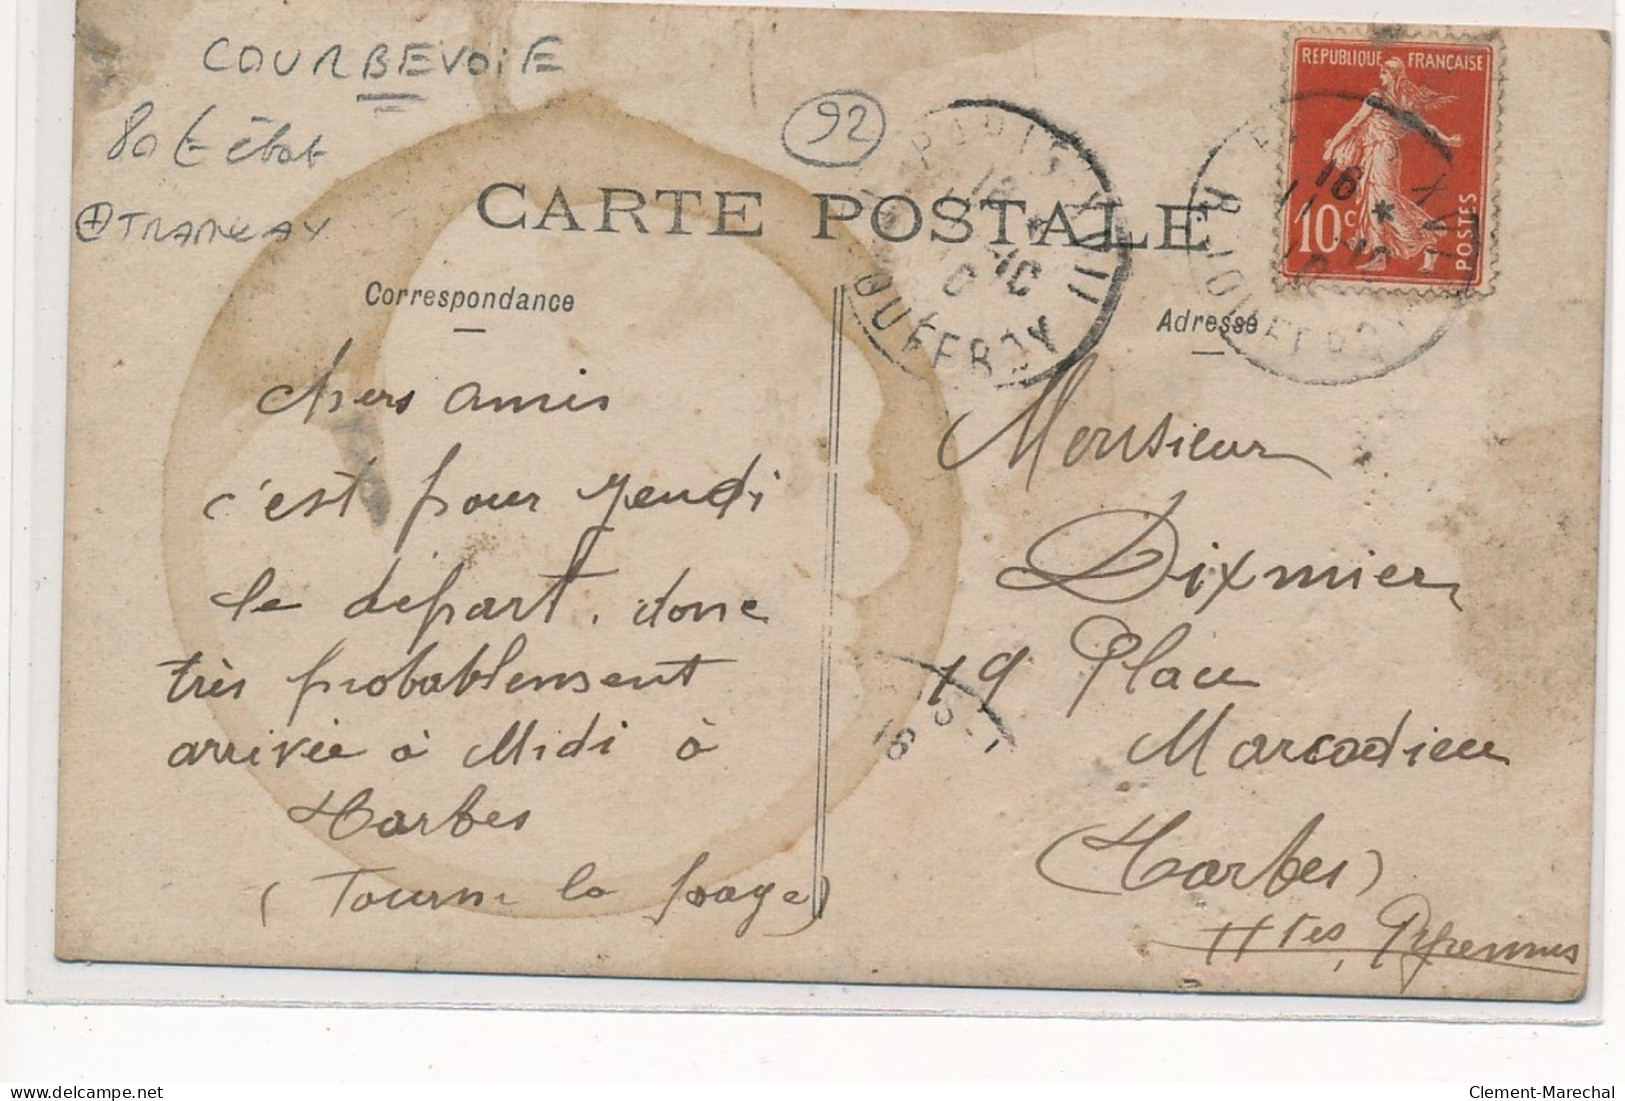 COURBEVOIE
80 € état
92
+ TRAMWAY
CARTE POSTALE
REPUBLIQUE FRANÇAISE
10c
POSTES
PARIS XVII
16
10
JOUFFROY
PARIS XVII
16 *
11
10
R. JOUFFROY
Correspondance
Adresse
Chers amis
c'est pour Jeudi
le départ. donc
très probablement
arrivée à Midi à
Tarbes
(Tourne la page)
Monsieur
Dixmier
19 Place
Marcadieu
Tarbes
Htes Pyrennees
16
Clement-Marechal